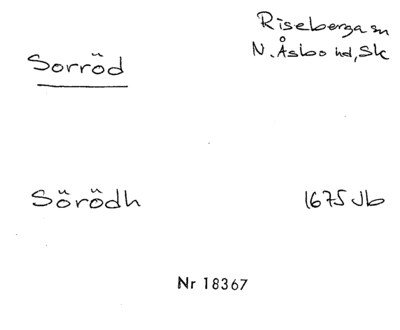 Riseberga sn
Sorröd
N. Åsbo hd, Sk
Sörödh 1675 Jb
Nr 18367